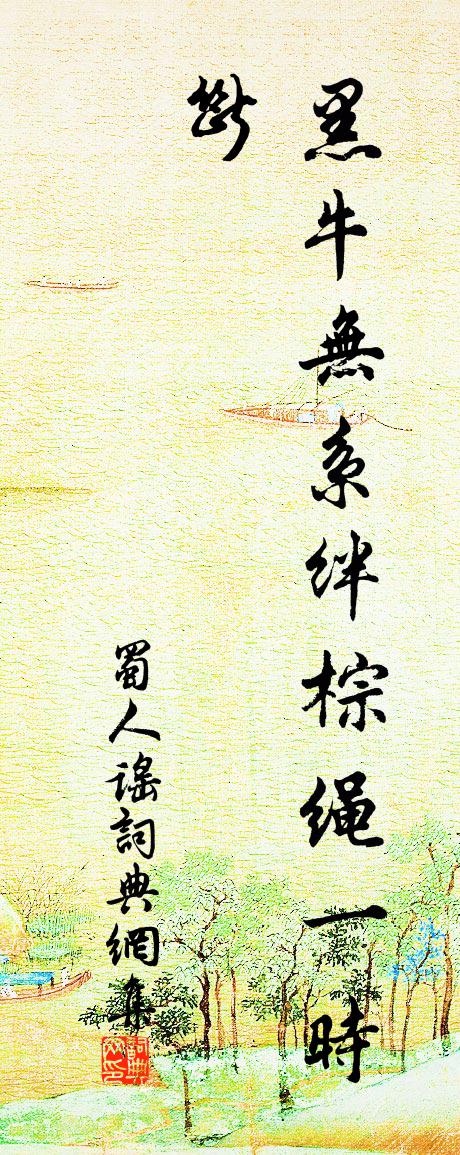 黑牛無系绊棕绳一時
斷
蜀人謠詞典網集